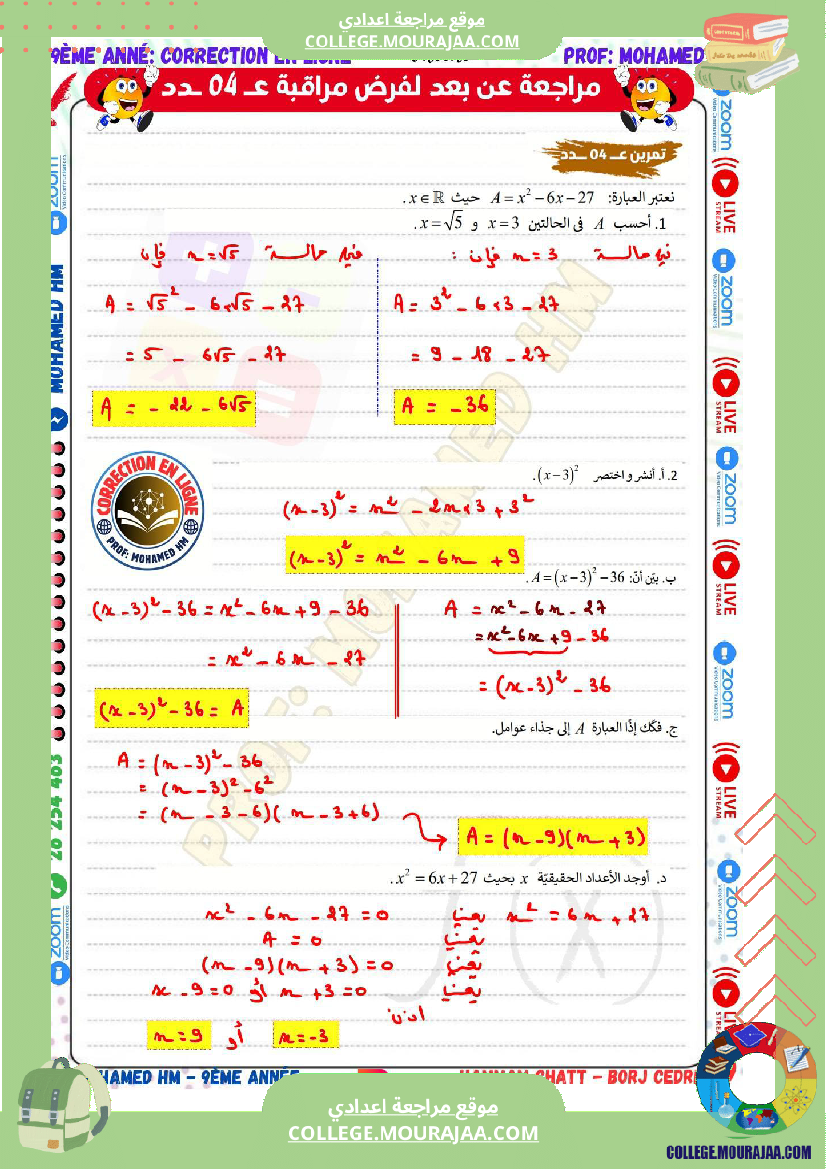 موقع مراجعة اعدادي
COLLEGE.MOURAJAA.COM
9ÈME ANNÉ: CORRECTION EN LIGNE
PROF: MOHAMED
مراجعة عن بعد لفرض مراقبة عـ 04 ـدد
تمرين عـ 04 ـدد
نعتبر العبارة: A = x² − 6x − 27 حيث x ∈ ℝ .
1. أحسب A في الحالتين x = 3 و x = √5 .
في حالة x = 3 فإن :
A = 3² − 6×3 − 27
= 9 − 18 − 27
A = −36
في حالة x = √5 فإن
A = √5² − 6×√5 − 27
= 5 − 6√5 − 27
A = −22 − 6√5
2. أ. أنشر واختصر (x−3)² .
(x−3)² = x² − 2x×3 + 3²
(x−3)² = x² − 6x + 9
ب. بيّن أنّ: A = (x−3)² − 36 .
A = x² − 6x − 27
= x² − 6x + 9 − 36
= (x−3)² − 36
(x−3)² − 36 = x² − 6x + 9 − 36
= x² − 6x − 27
(x−3)² − 36 = A
ج. فكّك إذًا العبارة A إلى جذاء عوامل.
A = (x−3)² − 36
= (x−3)² − 6²
= (x−3−6)(x−3+6)
A = (x−9)(x+3)
د. أوجد الأعداد الحقيقيّة x بحيث x² = 6x + 27 .
x² = 6x + 27 يعني x² − 6x − 27 = 0
يعني A = 0
يعني (x−9)(x+3) = 0
يعني x + 3 = 0 أو x − 9 = 0
اذن
x = −3 أو x = 9
CORRECTION EN LIGNE
PROF: MOHAMED HM
PROF: MOHAMED HM
MOHAMED HM
26 254 483
zoom
Video Communications
LIVE
STREAM
zoom
LIVE
STREAM
zoom
LIVE
STREAM
zoom
LIVE
STREAM
zoom
MOHAMED HM – 9ÈME ANNÉE
HAMMAM CHATT – BORJ CEDRI
موقع مراجعة اعدادي
COLLEGE.MOURAJAA.COM
COLLEGE.MOURAJAA.COM